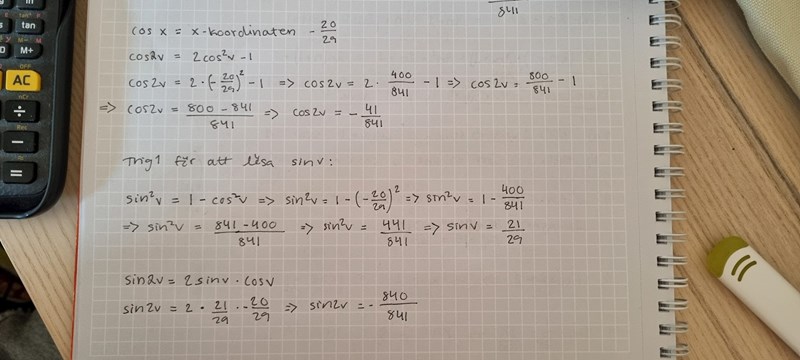 841
cos x = x-koordinaten - 20/29
cos2v = 2cos²v - 1
cos2v = 2 · (-20/29)² - 1 => cos2v = 2 · 400/841 - 1 => cos2v = 800/841 - 1
=> cos2v = 800 - 841/841 => cos2v = - 41/841
Trig 1 för att lösa sinv:
sin²v = 1 - cos²v => sin²v = 1 - (-20/29)² => sin²v = 1 - 400/841
=> sin²v = 841 - 400/841 => sin²v = 441/841 => sinv = 21/29
sin2v = 2 sinv · cosv
sin2v = 2 · 21/29 · -20/29 => sin2v = - 840/841
tan
tan
M+
AC
÷
−
=